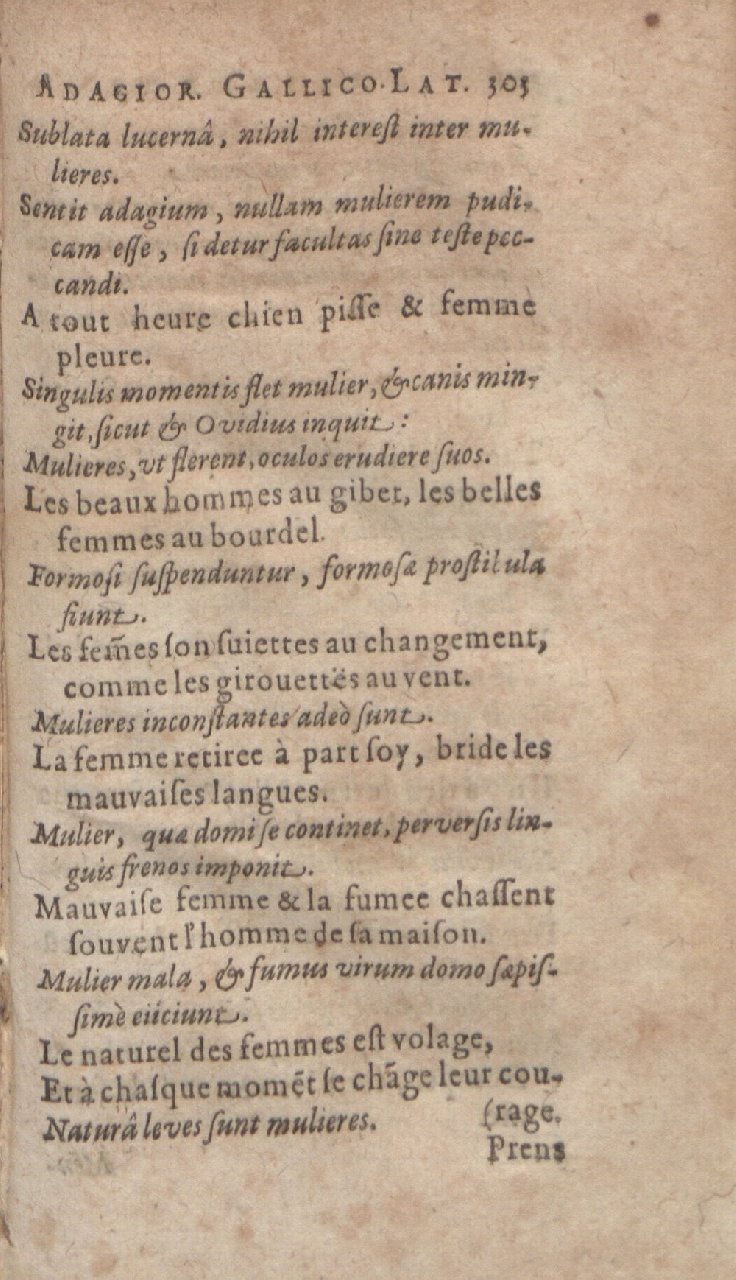 ADAGIOR. GALLICO-LAT. 305
Sublata lucernâ, nihil intereſt inter mu-
lieres.
Sentit adagium, nullam mulierem pudi-
cam eſſe, ſi detur facultas ſine teſte pec-
candi.
A tout heure chien piſſe & femme
pleure.
Singulis momentis flet mulier, & canis min-
git, ſicut & Ovidius inquit:
Mulieres, vt flerent, oculos erudiere ſuos.
Les beaux hommes au gibet, les belles
femmes au bourdel.
Formoſi ſuſpenduntur, formoſæ proſtibula
fiunt.
Les fem̃es ſon ſuiettes au changement,
comme les girouettes au vent.
Mulieres inconſtantes adeò ſunt.
La femme retiree à part ſoy, bride les
mauvaiſes langues.
Mulier, quæ domi ſe continet, perverſis lin-
guis frenos imponit.
Mauvaiſe femme & la fumee chaſſent
ſouvent l'homme de ſa maiſon.
Mulier mala, & fumus virum domo ſæpiſ-
ſimè eiiciunt.
Le naturel des femmes eſt volage,
Et à chaſque momẽt ſe chãge leur cou-
(rage.
Naturâ leves ſunt mulieres.
Prens